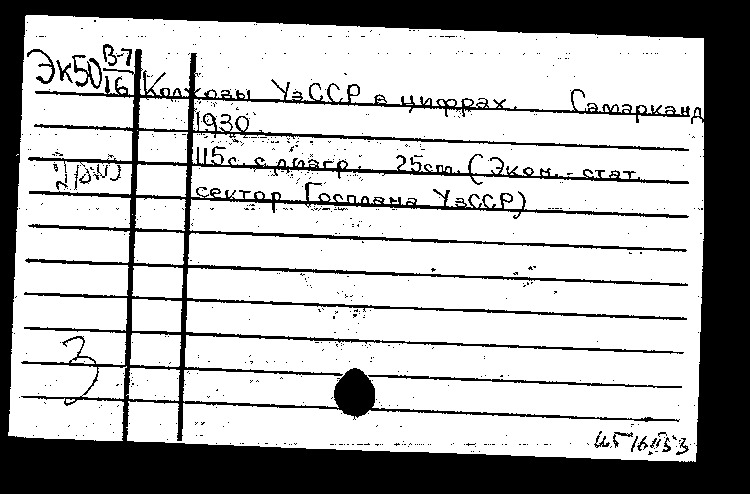 Эк50 В-7/16
Колхозы УзССР в цифрах. Самарканд
1930
115с. с диагр. 25cm. (Экон.-стат.
сектор Госплана УзССР)
3